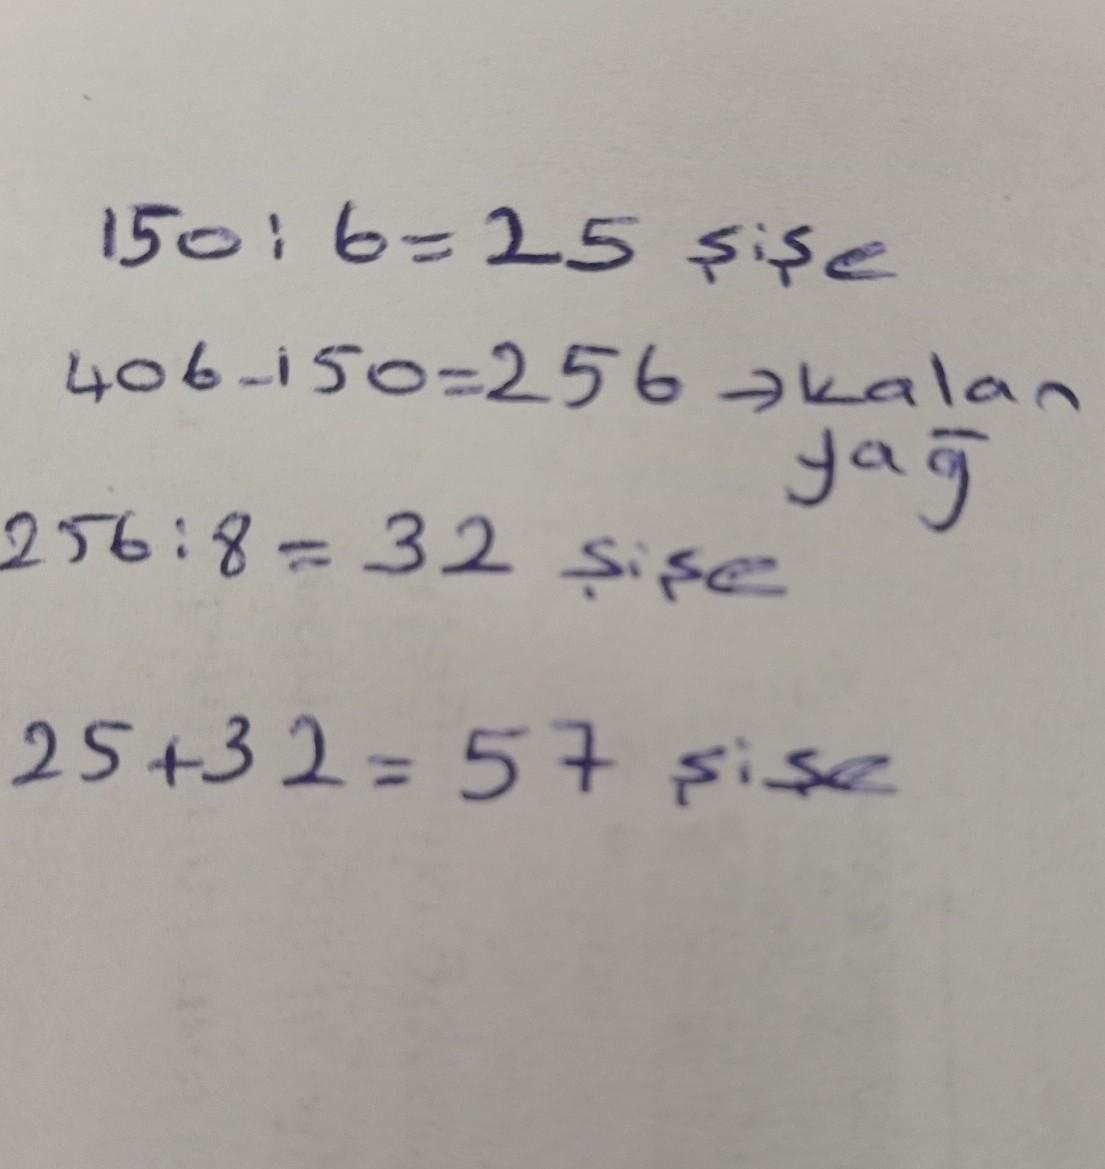 150 : 6 = 25 şişe
406-150=256 → kalan
yağ
256 : 8 = 32 şişe
25+32 = 57 şişe